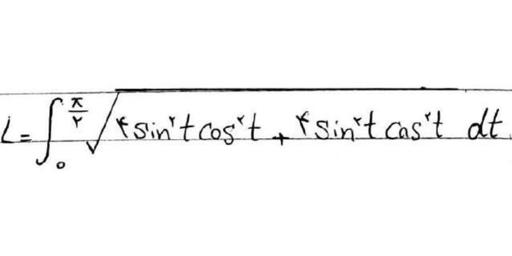 L = ∫₀^(π/۲) √(۴ sin^۲ t cos^۲ t + ۴ sin^۲ t cos^۲ t) dt